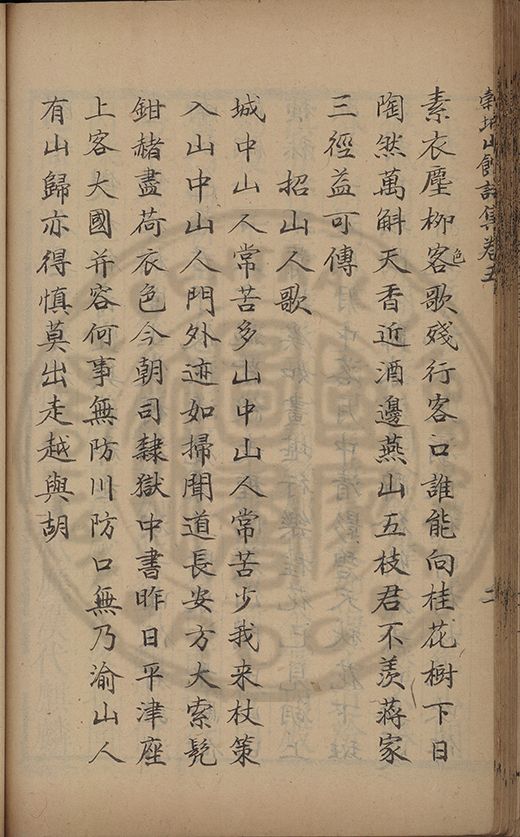 山館詩集卷五
素衣塵柳客歌殘行客口誰能向桂花樹下日
色
陶然萬斛天香近酒邊燕山五枝君不羡蔣家
三徑益可傳
招山人歌
城中山人常苦多山中山人常苦少我来杖策
入山中山人門外迹如掃聞道長安方大索髡
鉗赭盡荷衣色今朝司隸獄中書昨日平津座
上客大國并容何事無防川防口無乃渝山人
有山歸亦得慎莫出走越與胡
二